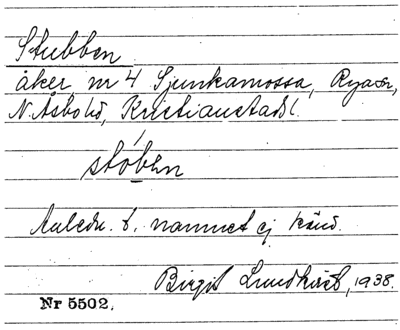 Stubben
åker, nr 4 Sjunkamossa, Rya sn,
N. Åsbo hd, Kristianstads l.
stóben
Anledn. t. namnet ej känd.
Birgit Lundkvist, 1938.
Nr 5502.